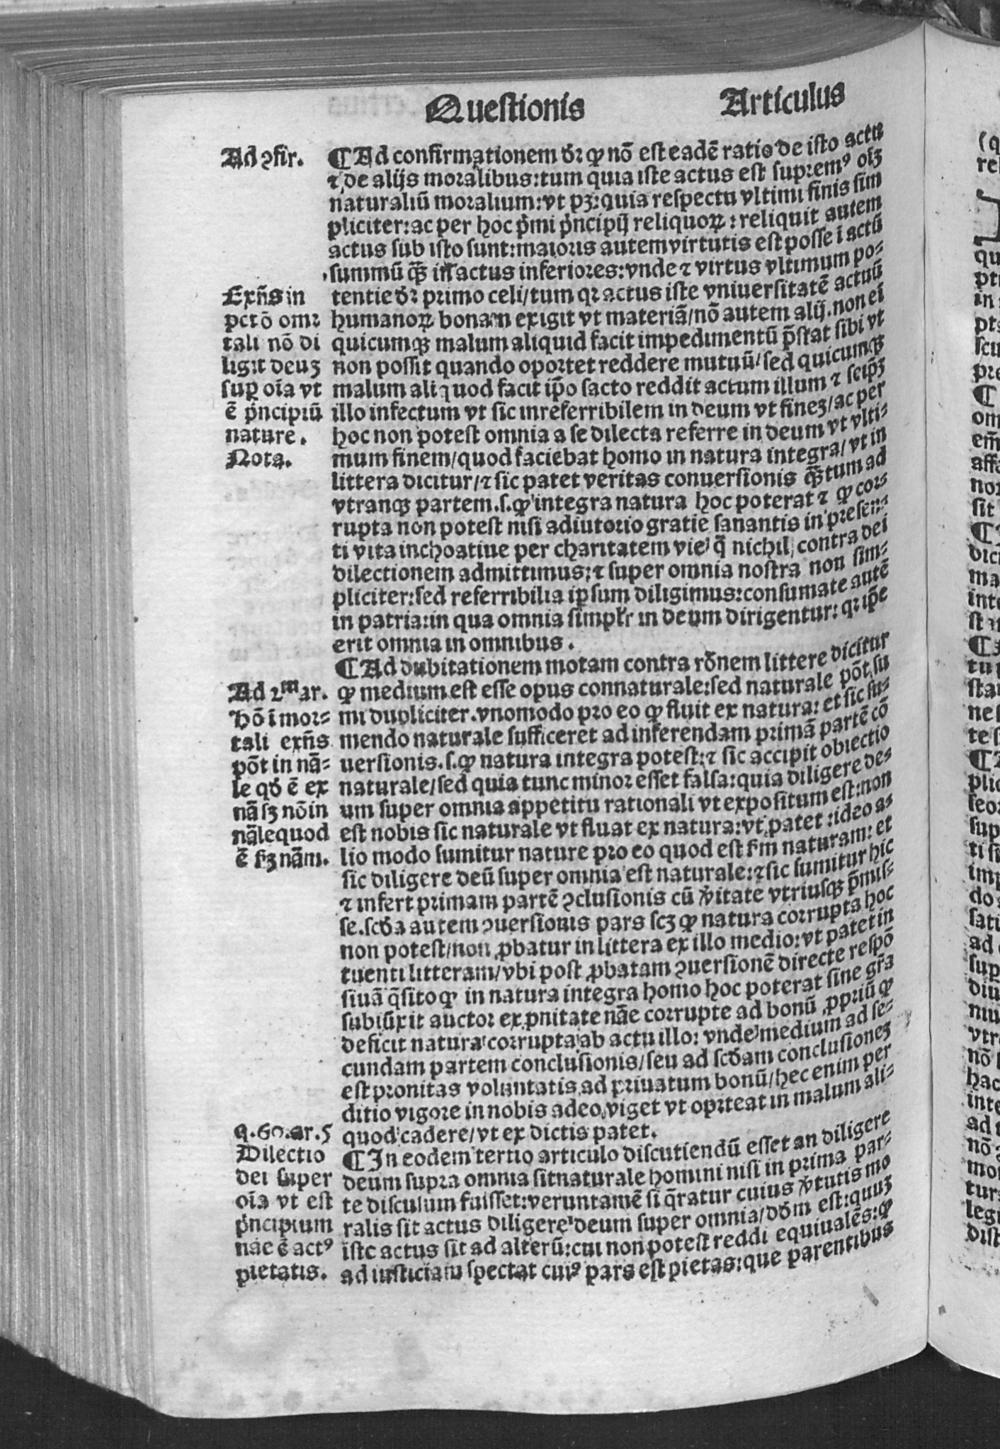 Questionis Articulus
Ad ꝯfir.
¶Ad confirmationem dr̄ ꝙ nō est eadē ratio de isto actu
⁊ de alijs moralibus: tum quia iste actus est supremꝰ oīꝫ
naturaliū moralium: vt pꝫ: quia respectu vltimi finis sim
pliciter: ac per hoc p̄mi p̄ncipij reliquoꝝ: reliquit autem
actus sub isto sunt: maioris autem virtutis est posse ī actū
summū ꝙ̄ in actus inferiores: vnde ⁊ virtus vltimum po-
tentie dr̄ primo celi/ tum qꝛ actus iste vniuersitatē actuū
humanoꝝ bonam exigit vt materiā/ nō autem alij. non eī
quicumqꝫ malum aliquid facit impedimentū p̄stat sibi vt
non possit quando oportet reddere mutuū/ sed quicumqꝫ
malum aliquod facit ip̄o facto reddit actum illum ⁊ seip̄ꝫ
illo infectum vt sic inreferribilem in deum vt fineꝫ/ ac per
hoc non potest omnia a se dilecta referre in deum vt vlti-
mum finem/ quod faciebat homo in natura integra/ vt in
littera dicitur/ ⁊ sic patet veritas conuersionis ꝙ̄tum ad
vtranqꝫ partem .s. ꝙ integra natura hoc poterat ⁊ ꝙ cor-
rupta non potest nisi adiutorio gratie sanantis in presen-
ti vita inchoatiue per charitatem vie/ q̄ nichil contra dei
dilectionem admittimus: ⁊ super omnia nostra non sim-
pliciter: sed referribilia ipsum diligimus: consumate autē
in patria: in qua omnia simplr̄ in deum dirigentur: qꝛ ip̄e
erit omnia in omnibus.
Exn̄s in
pctō mor
tali nō di
ligit deuꝫ
suꝑ oīa vt
ē p̄ncipiū
nature.
Nota.
¶Ad dubitationem motam contra rōnem littere dicitur
ꝙ medium est esse opus connaturale: sed naturale pōt su
mi dupliciter. vno modo pro eo ꝙ fluit ex natura: et sic su-
mendo naturale sufficeret ad inferendam primā partē cō
uersionis .s. ꝙ natura integra potest: ⁊ sic accipit obiectio
naturale/ sed quia tunc minor esset falsa: quia diligere de-
um super omnia appetitu rationali vt expositum est: non
est nobis sic naturale vt fluat ex natura: vt patet: ideo a-
lio modo sumitur nature pro eo quod est ẜm naturam: et
sic diligere deū super omnia est naturale: ⁊ sic sumitur hic
⁊ infert primam partē ꝯclusionis cū ṽitate vtriusqꝫ p̄mis-
se. scd̄a autem ꝯuersionis pars scꝫ ꝙ natura corrupta hoc
non potest/ non ꝓbatur in littera ex illo medio: vt patet in
tuenti litteram/ vbi post ꝓbatam ꝯuersionē directe respō
siuā q̄sito ꝙ in natura integra homo hoc poterat sine gr̄a
subiūxit auctor ex ꝓnitate nāe corrupte ad bonū ꝓpriū ꝙ
deficit natura corrupta ab actu illo: vnde medium ad se-
cundam partem conclusionis/ seu ad scd̄am conclusioneꝫ
est pronitas voluntatis ad priuatum bonū/ hec enim per
ditio vigore in nobis adeo viget vt oprteat in malum ali-
quod cadere/ vt ex dictis patet.
Ad 2ᵐ ar.
Hō ī mor-
tali exn̄s
pōt in nā-
le qd̄ ē ex
nā sꝫ nō in
nāle quod
ē ẜꝫ nām.
¶In eodem tertio articulo discutiendū esset an diligere
deum supra omnia sit naturale homini nisi in prima par-
te discusum fuisset: veruntamē si q̄ratur cuius ṽtutis mo
ralis sit actus diligere deum super omnia/ dd̄m est: quuꝫ
iste actus sit ad alterū: cui non potest reddi equiualēs: ꝙ
ad iusticiam spectat cuiꝰ pars est pietas: que parentibus
q. 60. ar. 5
Dilectio
dei super
oīa vt est
p̄ncipium
nāe ē actꝰ
pietatis.